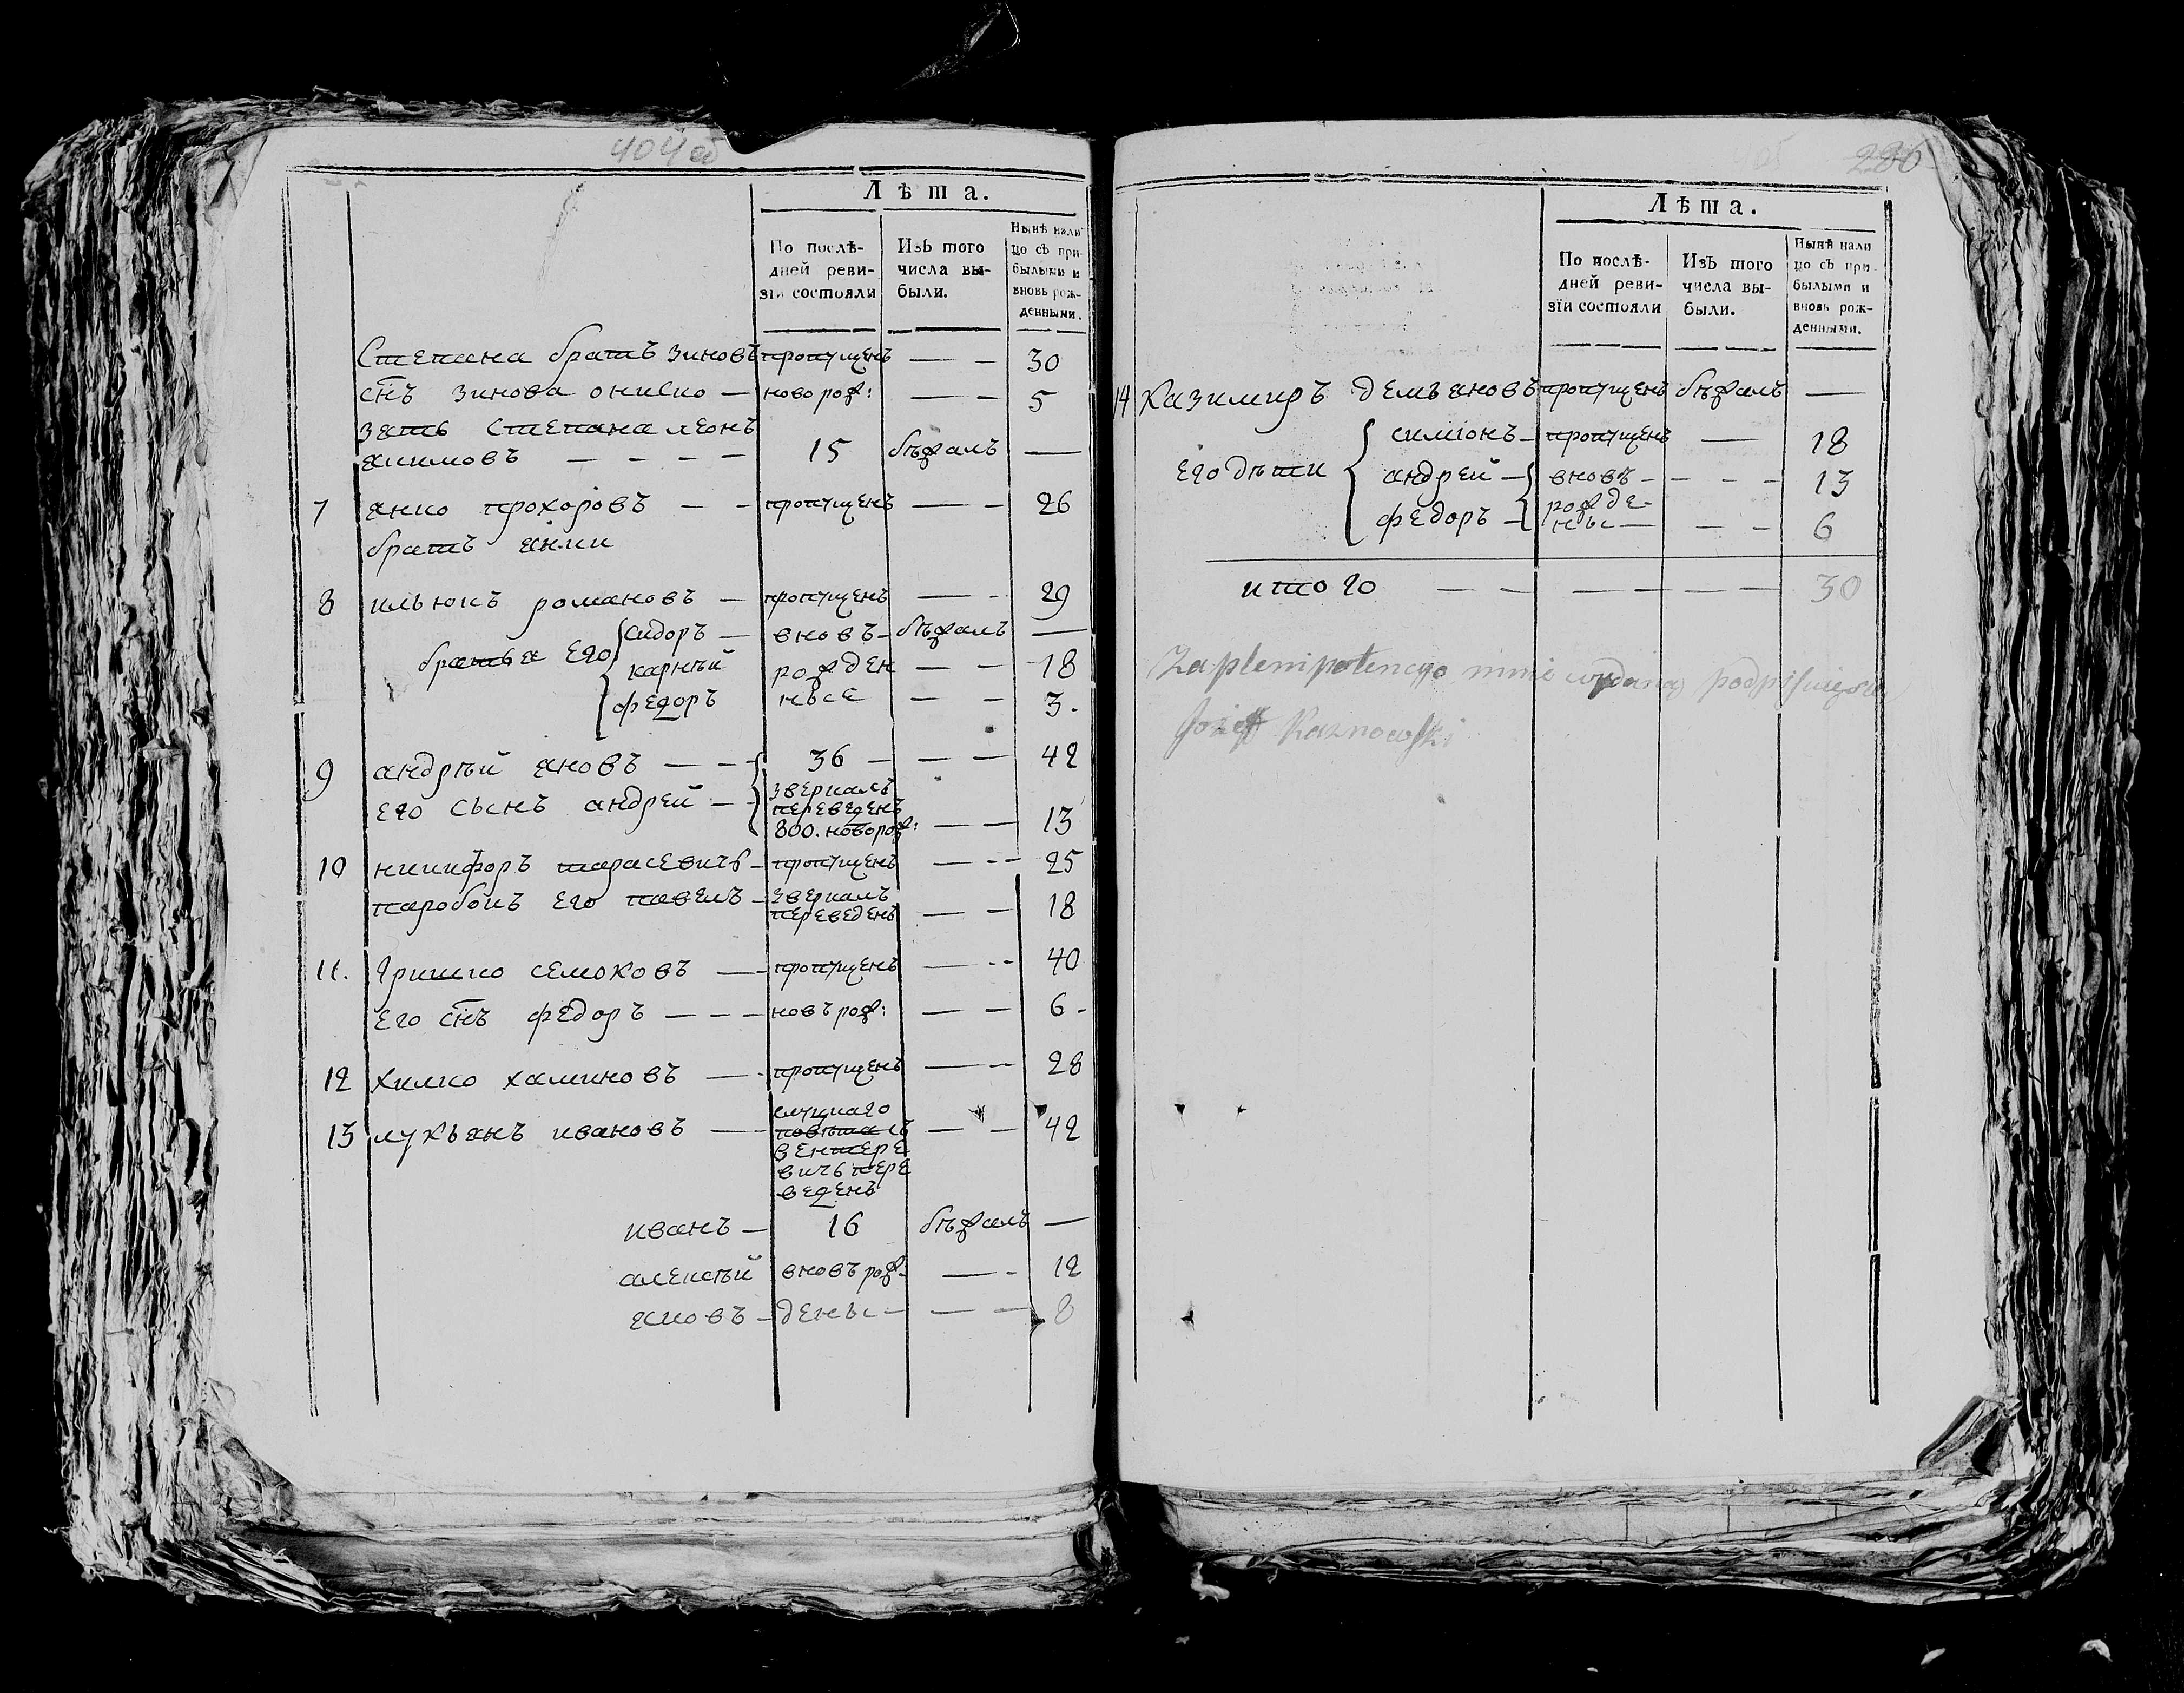 404 об
Лѣта.
По послѣ-
дней реви-
зіи состояли
Изъ того
числа вы-
были.
Нынѣ нали
цо съ при-
былыми и
вновь рож-
денными.
Степана братъ зиновъ пропущенъ — — 30
снъ зинова ониско — новорож: — — 5
зять степана леонъ
якимовъ — — — — 15 бѣжалъ —
7 янко прохоровъ — — пропущенъ — — 26
братъ янки
8 ильюкъ романовъ — пропущенъ — - 29
братья его сидоръ — вновъ- бѣжалъ —
карнѣй рожден — — 18
федоръ ныe — — 3.
9 андрѣй яновъ — — - 36 — — — 42
его сынъ андрей — - зверкалъ
переведенъ
800. новорож: — — 13
10 никифоръ тарасевичъ - пропущенъ — - - 25
паробокъ его павелъ - зверкалъ
переведенъ — — 18
11. гришко семоховъ — пропущенъ — - - 40
его снъ федоръ — — — новъ рож: — — 6 -
12 хилко халиковъ — - пропущенъ — - 28
13 лукьянъ ивановъ — слуцкаго
повѣта съ — — 42
вентере
вичъ пере
веденъ
иванъ — 16 бѣжалъ —
алексѣй вновъ рож- — - 12
яковъ - дены - — — 8
405 286
Лѣта.
По послѣ-
дней реви-
зіи состояли
Изъ того
числа вы-
были.
Нынѣ нали
цо съ при-
былыми и
вновь рож-
денными.
14 казимиръ демьяновъ пропущенъ бѣжалъ —
его дѣти симіонъ - пропущенъ — 18
андрей — вновъ - - - - 13
федоръ - рожде-
ны — — - 6
итого — — — — — — 30
Za plenipotencyo mnie wydaną podpisuię się
Jozeff Kaznowski